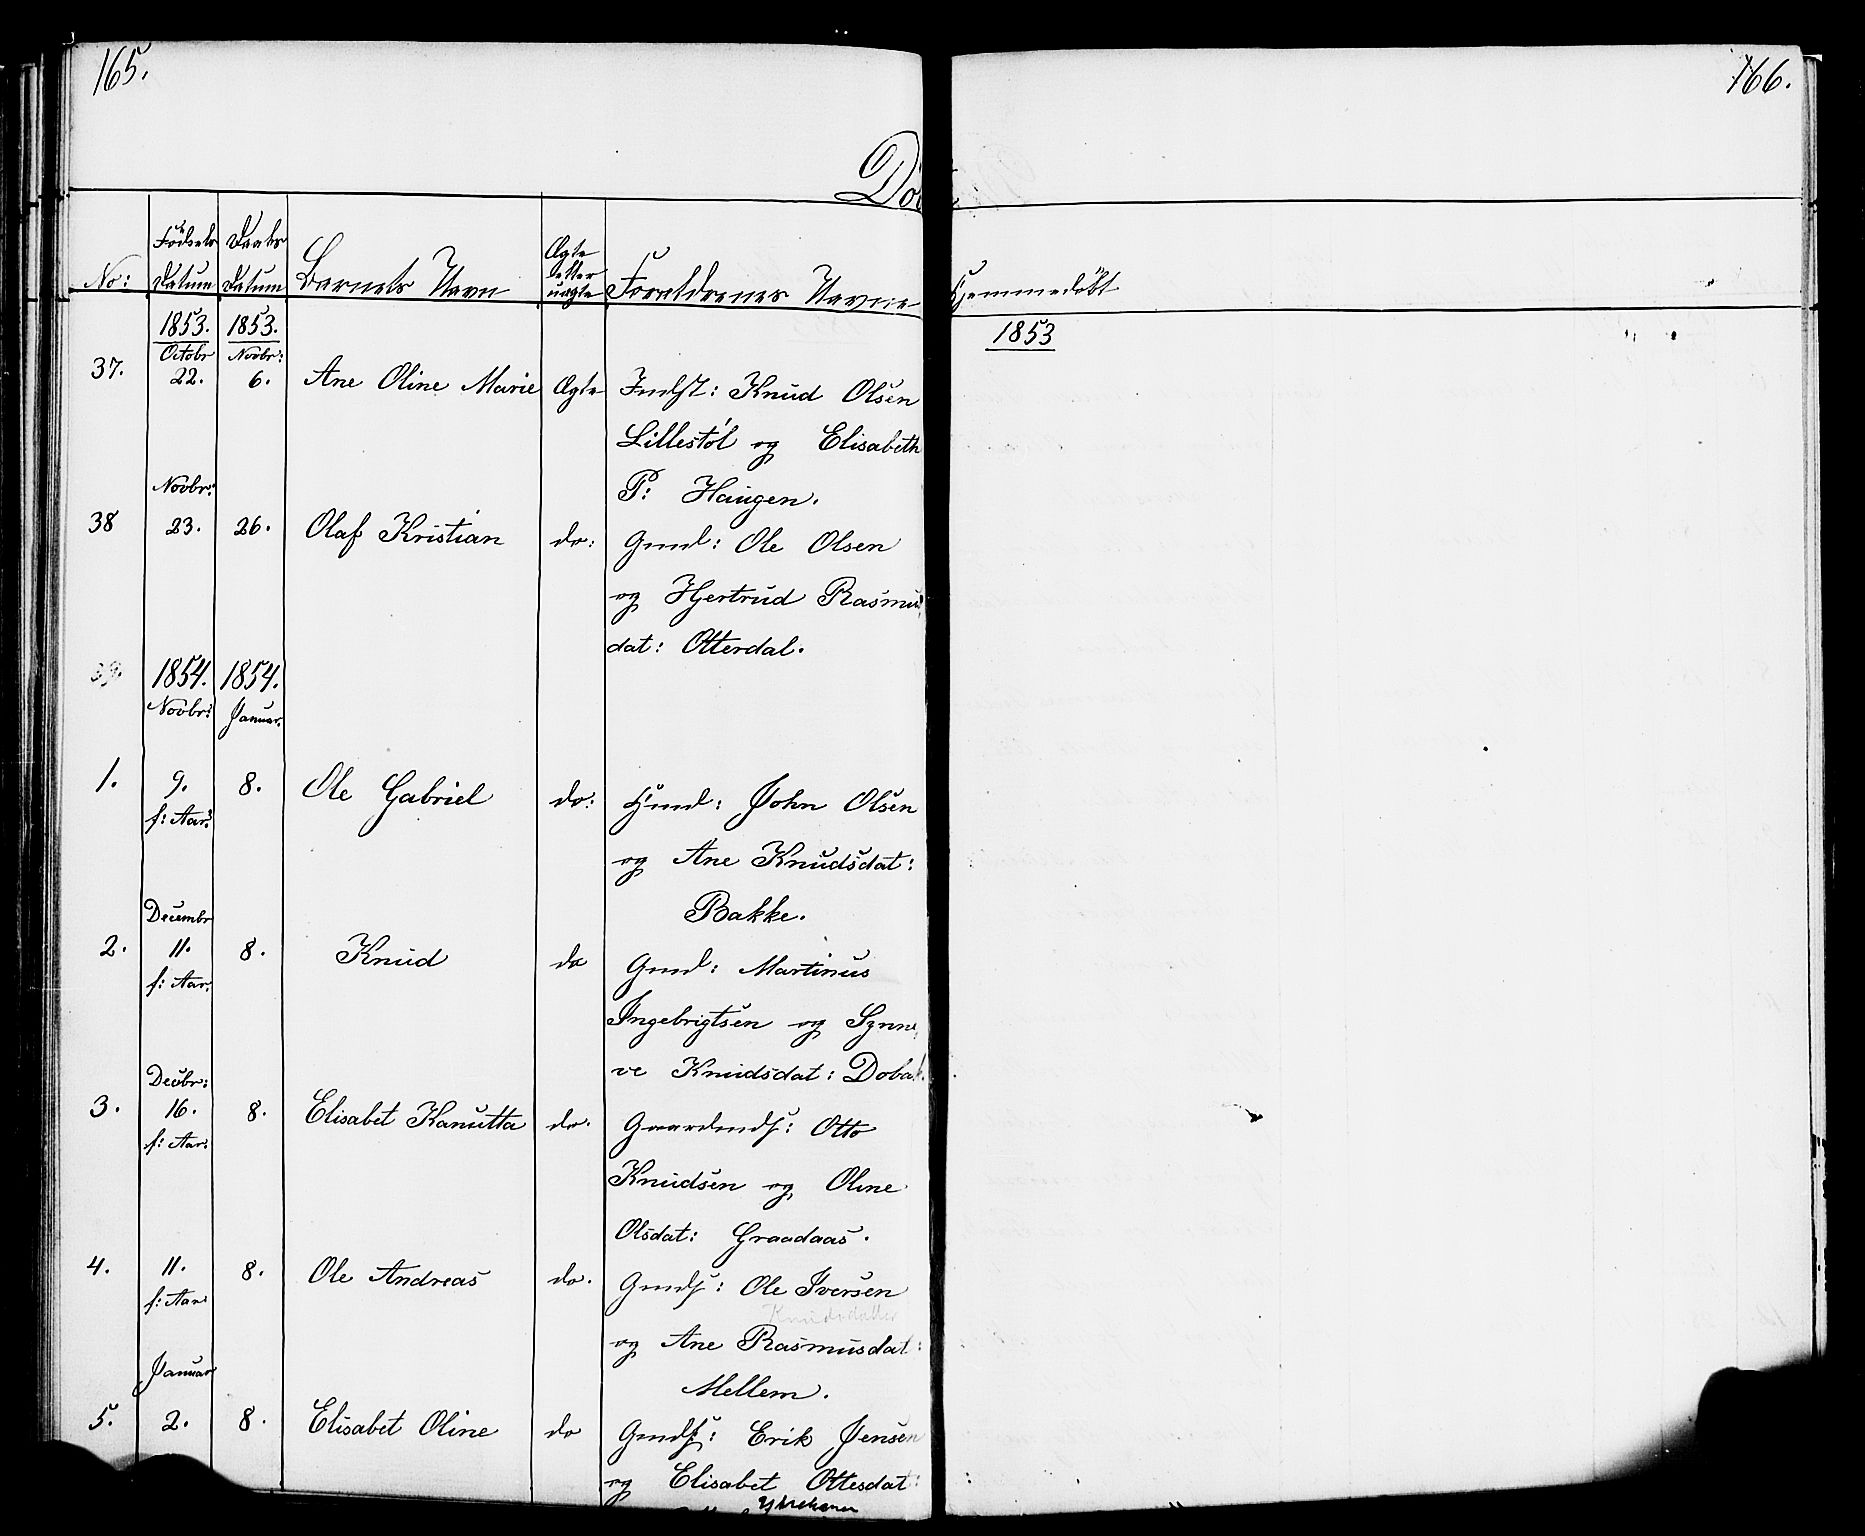 165.
166.
Fødsels Daabs
Datum Datum
No: Barnets Navn
Ægte
eller
uægte
Foreldrenes Navne
Hjemmedöbt
1853. 1853. 1853
Octobr Novbr:
37. 22. 6. Ane Oline Marie Ægte Indst: Knud Olsen
Lillestöl og Elisabeth
P: Haugen.
Novbr:
38 23. 26. Olaf Kristian do: Gmd: Ole Olsen
og Hjertrud Rasmus
dat: Otterdal.
39. 1854. 1854.
Novbr: Januar.
1. 9. 8. Ole Gabriel do: Hmd: John Olsen
f: Aar:
og Ane Knudsdat:
Bakke.
Decembr
2. 11. 8. Knud do Gmd: Martinus
f: Aar.
Ingebrigtsen og Synne
ve Knudsdat:
Decbr:
3. 16. 8. Elisabet Kanutta do. Gaardmds: Otto
f: Aar:
Knudsen og Oline
Olsdat: Graadaas.
4. 11. 8. Ole Andreas do. Gmds: Ole Iversen
f: Aar:
Knudsdatter
og Ane Rasmusdat:
Mellem.
Januar
5. 2. 8. Elisabet Oline do Gmds: Erik Jensen
og Elisabet Ottesdat: